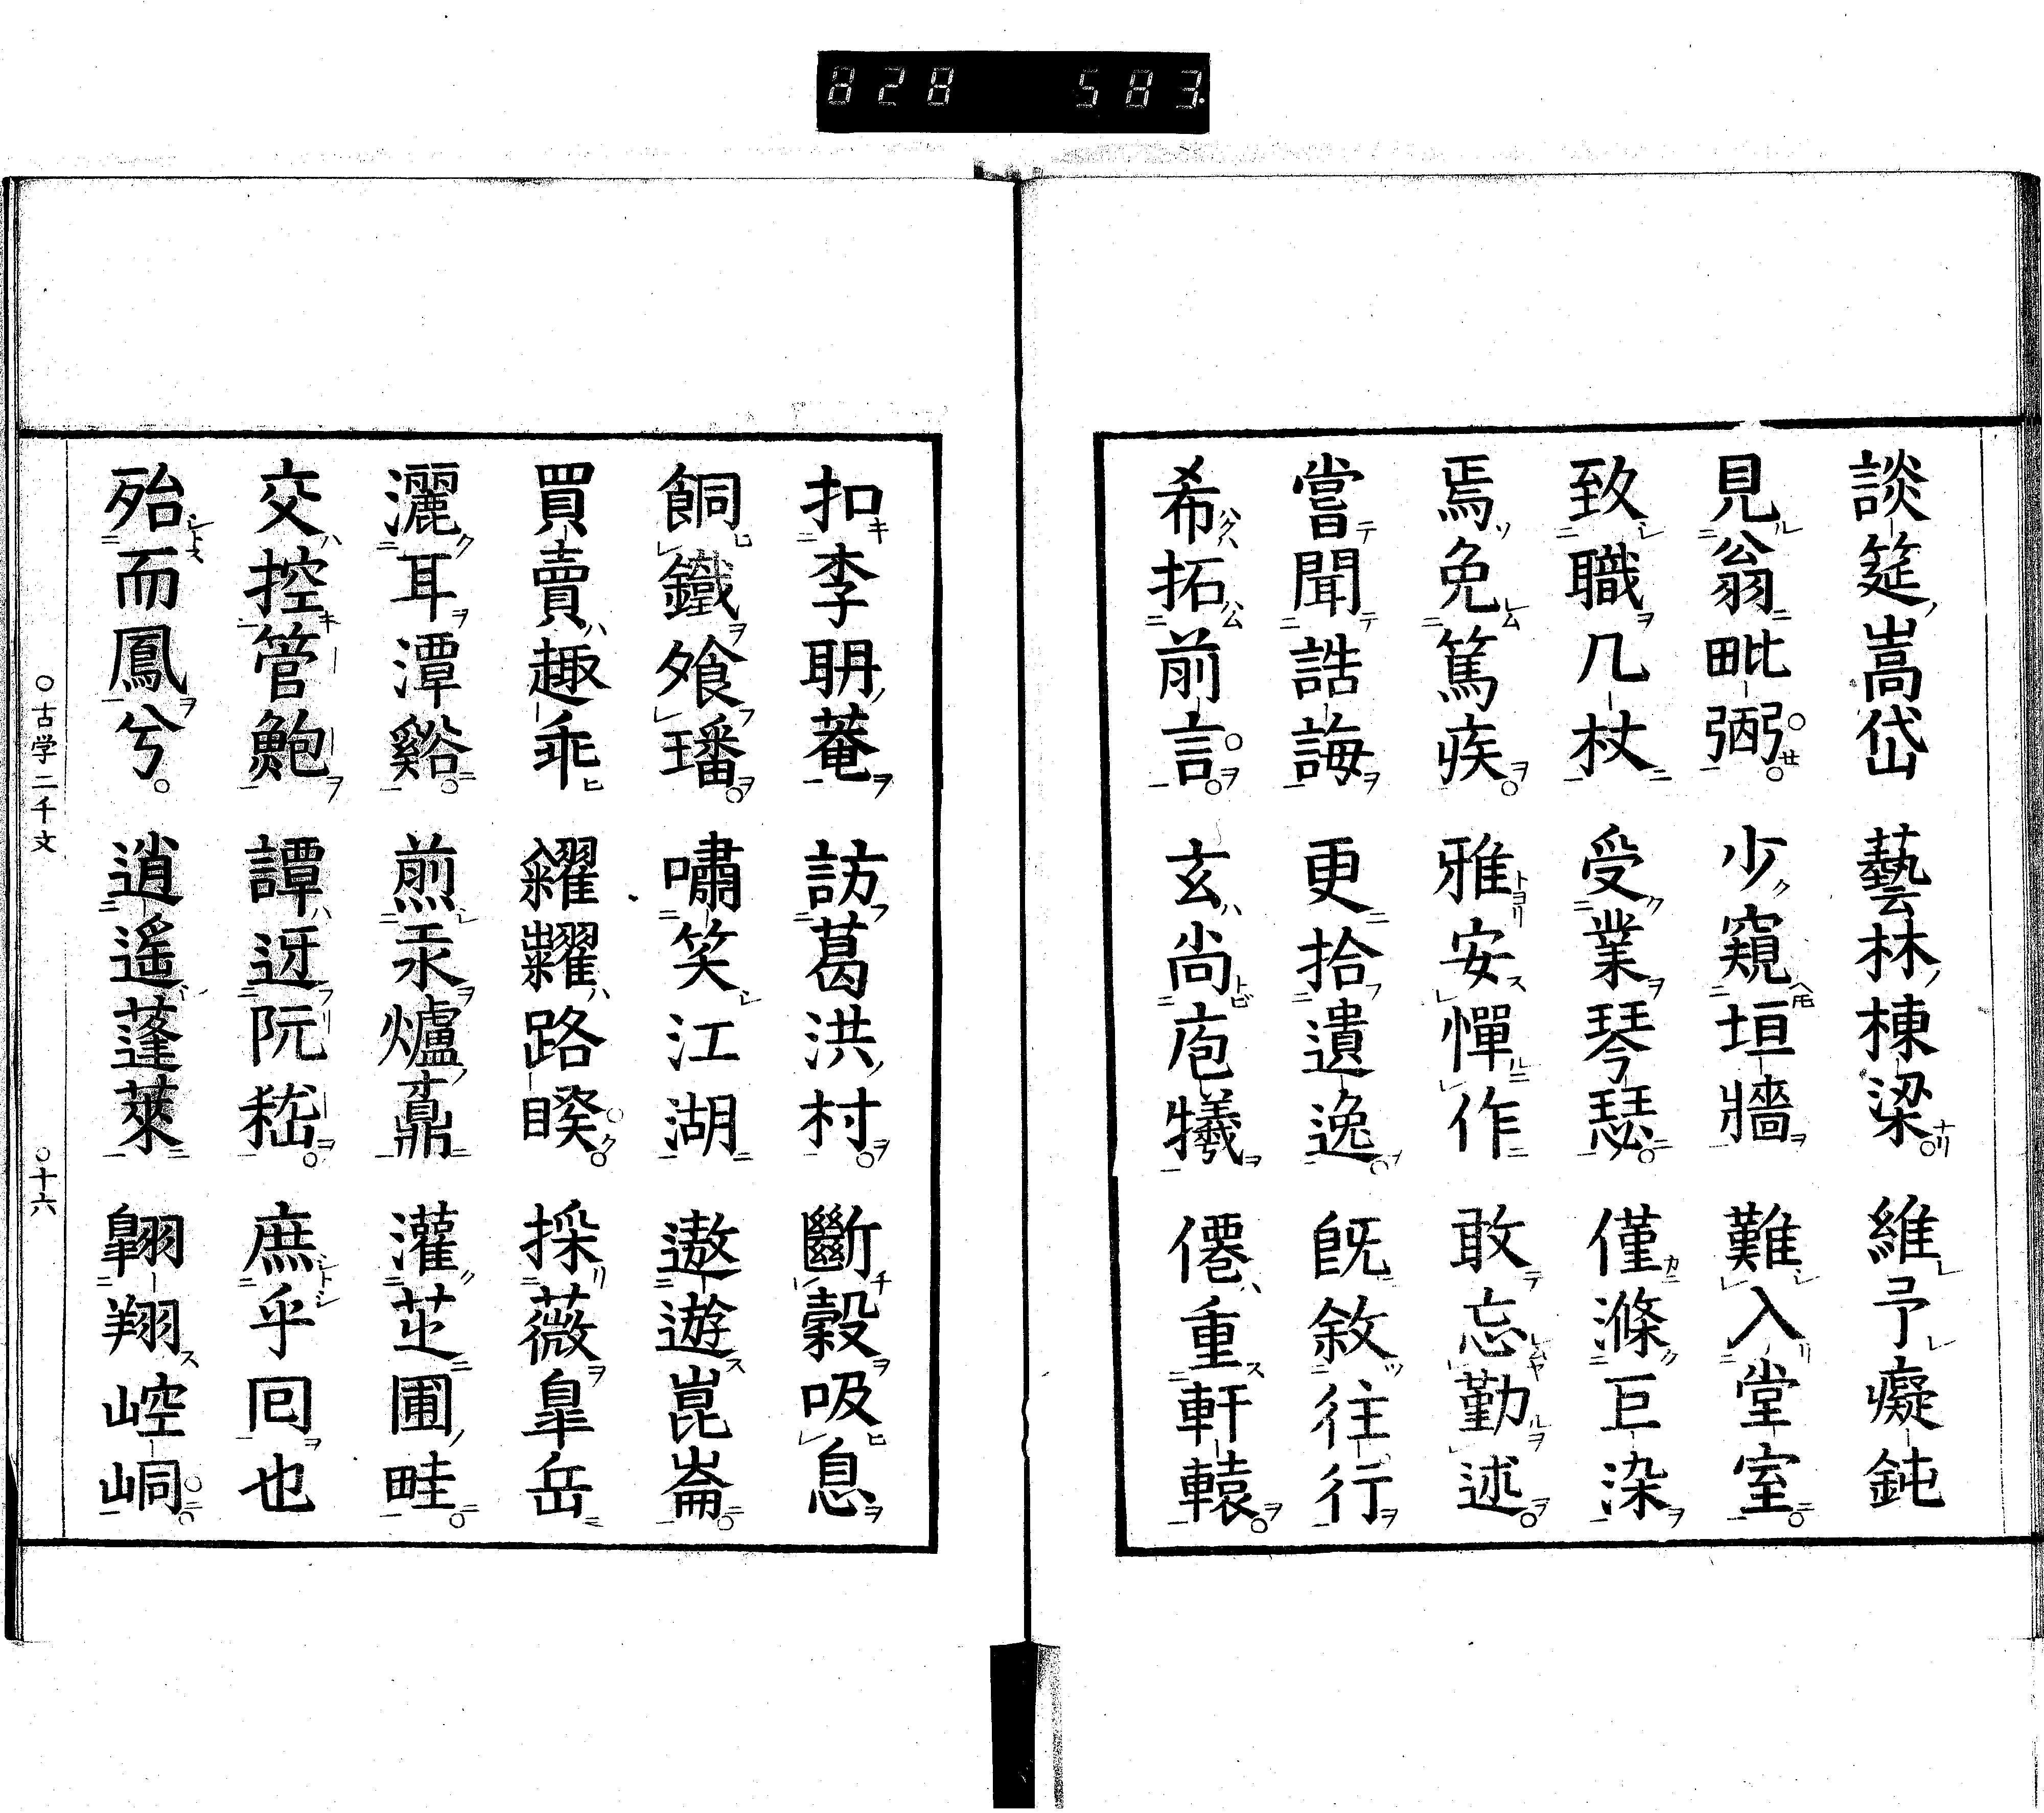 828 583
談筵嵩岱 藝林棟梁 維予癡鈍
見翁毗弼 少窺垣牆 難入堂室
致職几杖 受業琴瑟 僅滌巨染
焉免篤疾 雅安憚作 敢忘勤述
嘗聞誥誨 更拾遺逸 既敘往行
希拓前言 玄尚庖犧 僊重軒轅
扣李耼菴 訪葛洪村 斷穀吸息
餇鐵飧璠 嘯笑江湖 遨遊崑崙
買賣趣乖 糴糶路睽 採薇皐岳
灑耳潭谿 煎汞爐鼒 灌芷圃畦
交控管鮑 譚迓阮嵇 庶乎回也
殆而鳳兮 逍遙蓬萊 翺翔崆峒
○古学二千文 ○十六